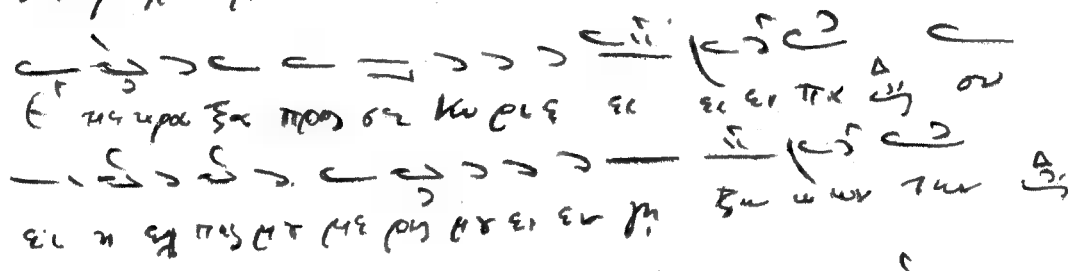 Ε κε κρα ξα προς σε Κυ ρι ε ει ει ει πα Δ συ
ει η ελ πις μου με ρις μου ει εν γη ζω ω ων των Δ